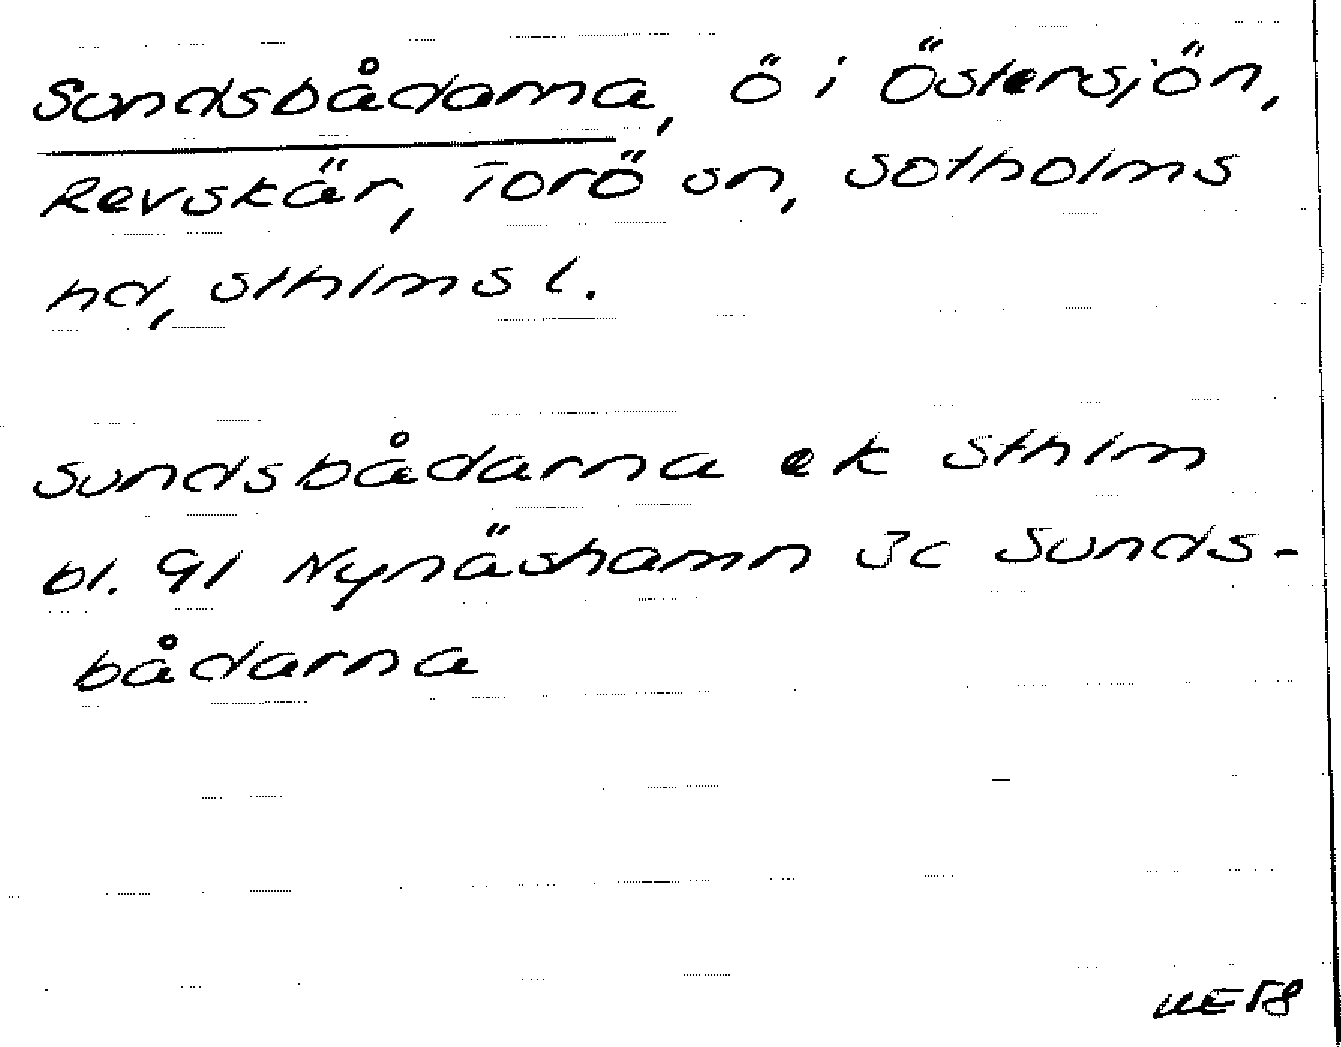 Sundsbådarna, ö i Östersjön,
Revskär, Torö sn, Sotholms
hd, Sthlms l.
Sundsbådarna ek Sthlm
bl. 91 Nynäshamn 3c Sunds-
bådarna